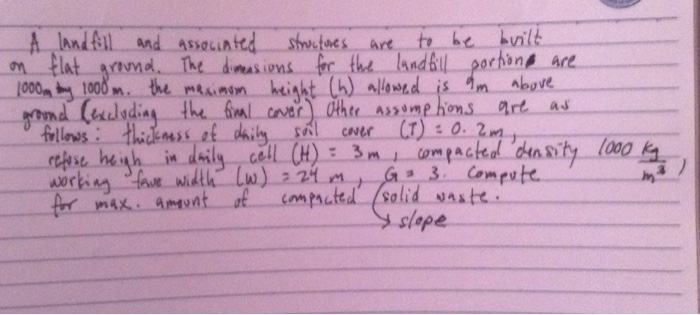 A landfill and associated structures are to be built
on flat ground. The dimensions for the landfill portions are
1000m by 1000m. the maximum height (h) allowed is 9m above
ground (excluding the final cover) Other assumptions are as
follows: thickness of daily soil cover (T) = 0.2m,
refuse heigh in daily cell (H) = 3m, compacted density 1000 kg/m³,
working face width (W) = 24 m, G = 3. Compute
for max. amount of compacted solid waste.
→ slope